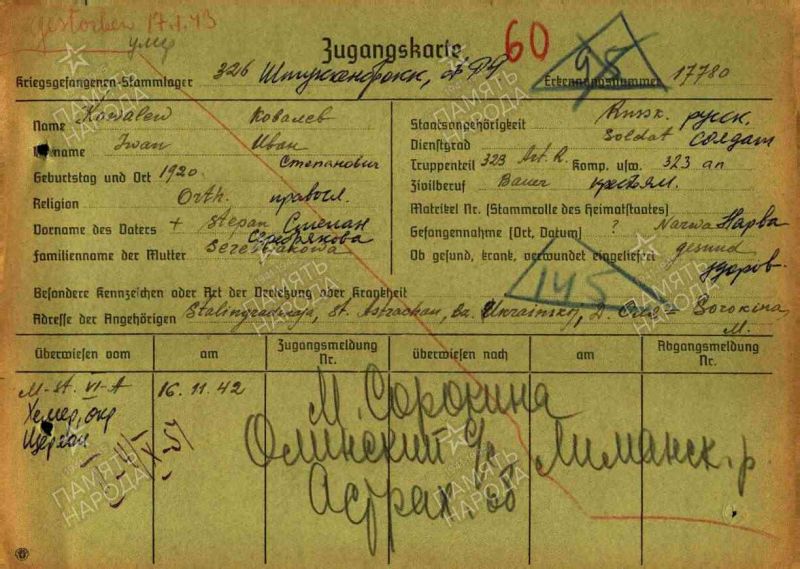 gestorben 17.1.43
умер
Zugangskarte 60 98
Kriegsgefangenen-Stammlager 326 Штукенброкк, ФРГ Erkennungsnummer 17780
Name Kowalew Ковалев
Vorname Iwan Иван
Степанович
Geburtstag und Ort 1920
Religion Orth. правосл.
Vorname des Vaters + Stepan Степан
Familienname der Mutter Serebrakowa Серебрякова
Staatsangehörigkeit Russk. русск.
Dienstgrad Soldat солдат
Truppenteil 323 Art. R. Komp. usw. 323 ап
Zivilberuf Bauer крестьян.
Matrikel Nr. (Stammrolle des Heimatstaates)
Gefangennahme (Ort, Datum) ? Narwa Нарва
Ob gesund, krank, verwundet eingeliefert gesund
здоров.
145
Besondere Kennzeichen oder Art der Verletzung oder Krankheit
Adresse der Angehörigen Stalingradskaja, St. Astrachan, Ukrainskoj, D. Sorokina
M.
Überwiesen vom am Zugangsmeldung Nr. überwiesen nach am Abgangsmeldung Nr.
M-St. VI-A 16.11.42
Хемер, окр
М. Сорокина
Олинский с/с Лиманск. р
Астрах. об
ПАМЯТЬ НАРОДА